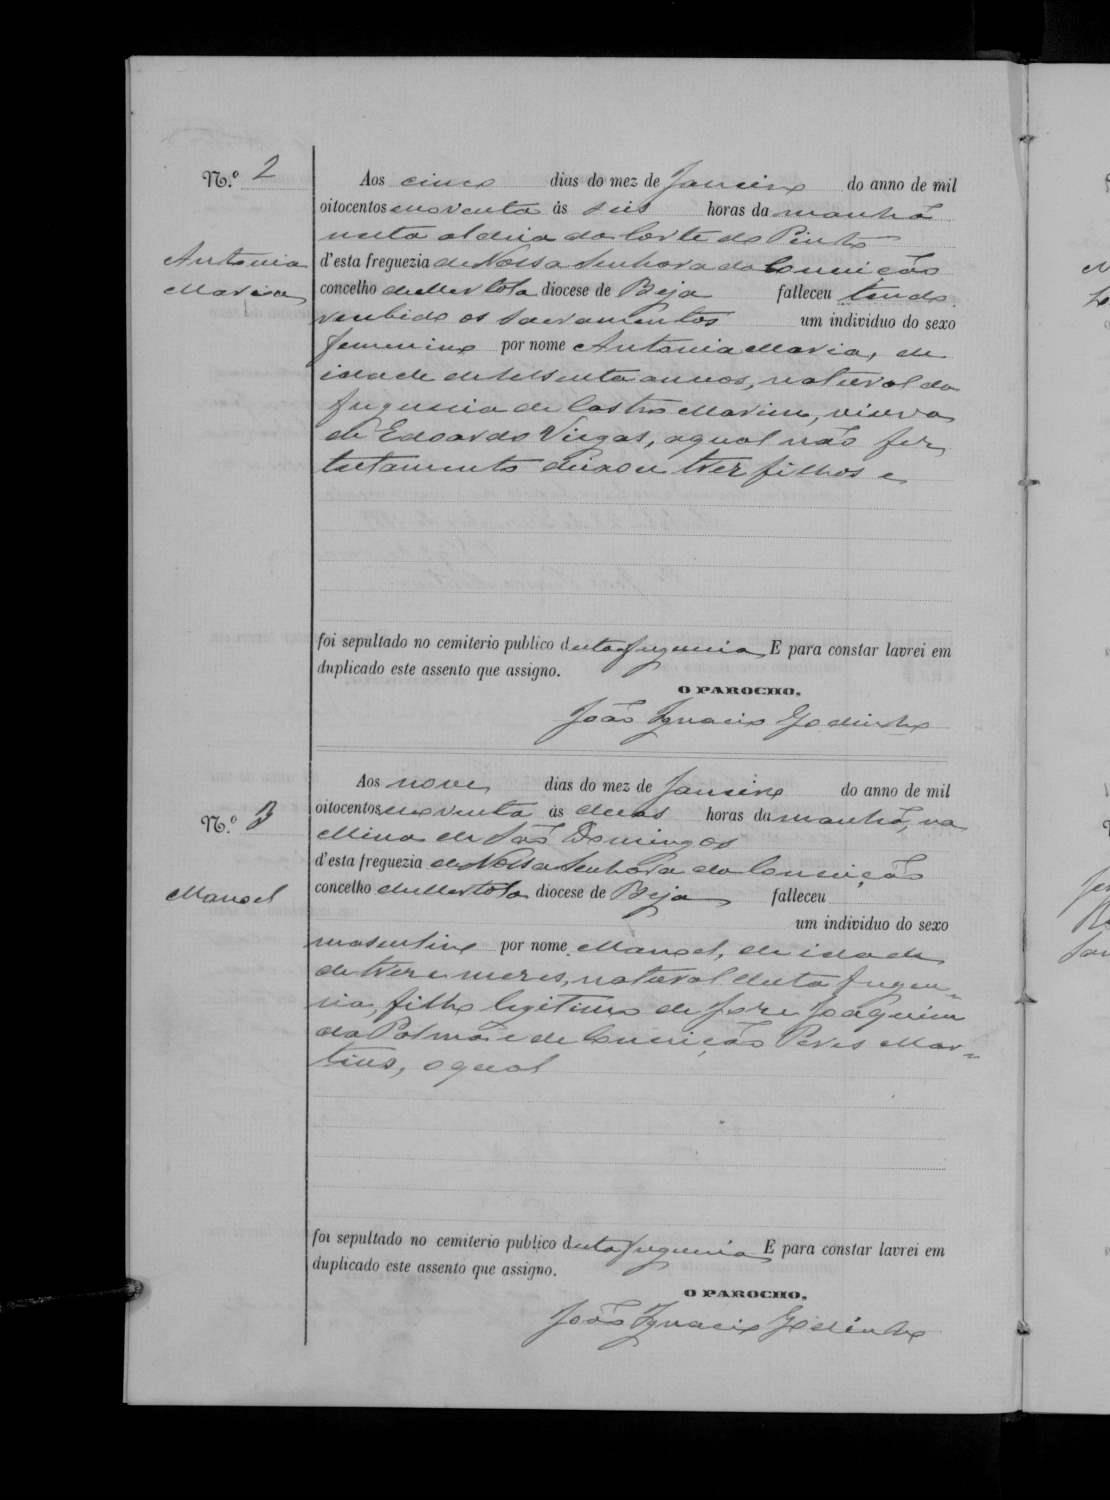 N.º 2
Aos cinco dias do mez de Janeiro do anno de mil
oitocentos noventa ás seis horas da manhã
nesta aldeia da Corte do Pinto
Antonia
d'esta freguezia de Nossa Senhora da Conceição
Maria
concelho de Mertola diocese de Beja falleceu tendo
recebido os sacramentos um individuo do sexo
femenino por nome Antonia Maria, de
idade de sessenta annos, natural da
freguesia de Castro Marim, viuva
de Edoardo Viegas, a qual não fez
testamento deixou trez filhos e
foi sepultado no cemiterio publico desta freguesia E para constar lavrei em
duplicado este assento que assigno.
O PAROCHO,
João Ignacio Godinho
N.º 3
Aos nove dias do mez de Janeiro do anno de mil
oitocentos noventa ás duas horas da manhã, na
Mina de São Domingos
d'esta freguezia de Nossa Senhora da Conceição
Manoel
concelho de Mertola diocese de Beja falleceu
um individuo do sexo
masculino por nome Manoel, de idade
de treze mezes, natural desta fregue-
sia, filho legitimo de José Joaquim
da Palma e de Conceição Peres Mar-
tins, o qual
foi sepultado no cemiterio publico desta freguesia E para constar lavrei em
duplicado este assento que assigno.
O PAROCHO,
João Ignacio Godinho